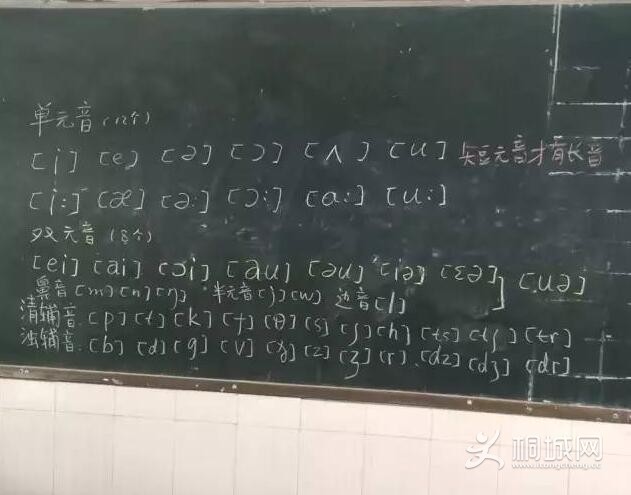 单元音(12个)
[i] [e] [ə] [ɔ] [ʌ] [u] 短元音才有长音
[i:] [æ] [ə:] [ɔ:] [a:] [u:]
双元音(8个)
[ei] [ai] [ɔi] [au] [əu] [iə] [ɛə] [uə]
鼻音[m][n][ŋ] 半元音[j][w] 边音[l]
清辅音:[p][t][k][f][θ][s][ʃ][h][ts][tʃ][tr]
浊辅音:[b][d][g][v][z][ʒ][r][dz][dʒ][dr]
桐城网
www.itongcheng.cc